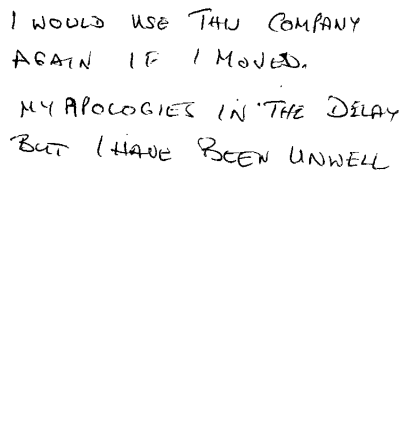 I WOULD USE THIS COMPANY
AGAIN IF I MOVED.
MY APOLOGIES IN THE DELAY
BUT I HAVE BEEN UNWELL